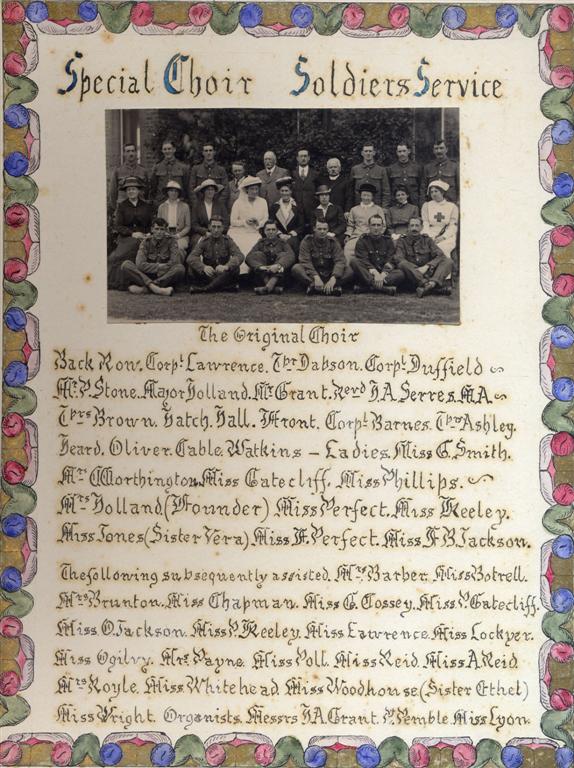 Special Choir Soldiers Service
The Original Choir
Back Row. Corpl Lawrence. Tpr Dabson. Corpl Duffield
Mr P. Stone. Major Holland. Mr Grant. Revd J.A. Serres. M.A
Tprs Brown. Hatch. Hall. Front. Corpl Barnes. Tprs Ashley.
Heard. Oliver. Cable. Watkins – Ladies. Miss G. Smith.
Mrs Worthington. Miss Gatecliff. Miss Phillips.
Mrs Holland (Founder) Miss Perfect. Miss Keeley.
Miss Jones (Sister Vera) Miss F. Perfect. Miss F.B. Jackson.
The following subsequently assisted. Mrs Barber. Miss Botrell.
Mrs Brunton. Miss Chapman. Miss G. Cossey. Miss P. Gatecliff.
Miss O. Jackson. Miss P. Keeley. Miss Lawrence. Miss Lockyer.
Miss Ogilvy. Mrs Payne. Miss Poll. Miss Reid. Miss A. Reid
Mrs Royle. Miss Whitehead. Miss Woodhouse (Sister Ethel)
Miss Wright. Organists. Messrs J.A. Grant. P. Pemble. Miss Lyon.